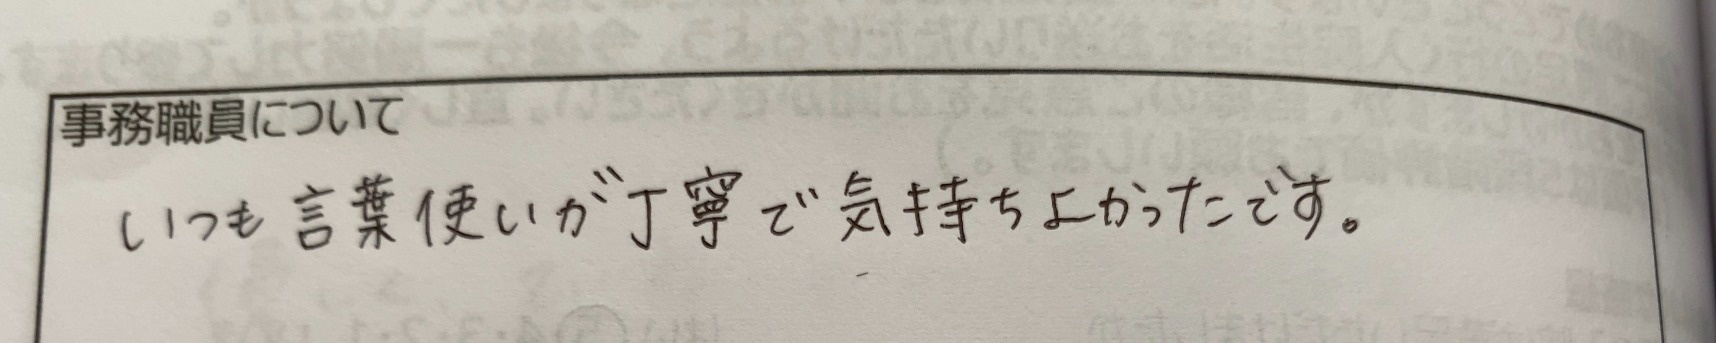 事務職員について
いつも言葉使いが丁寧で気持ちよかったです。